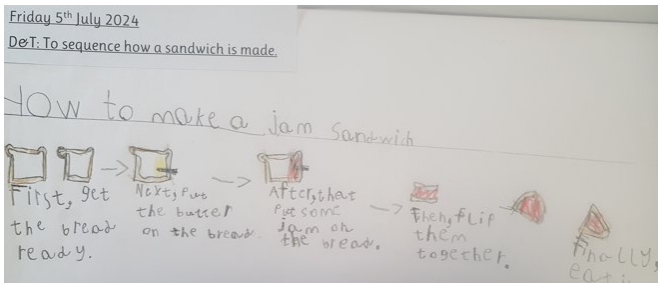 Friday 5th July 2024
D&T: To sequence how a sandwich is made.
How to make a jam sandwich
First, get
the bread
ready.
Next, put
the butter
on the bread.
After, that
put some
jam on
the bread.
Then, flip
them
together.
Finally,
eat